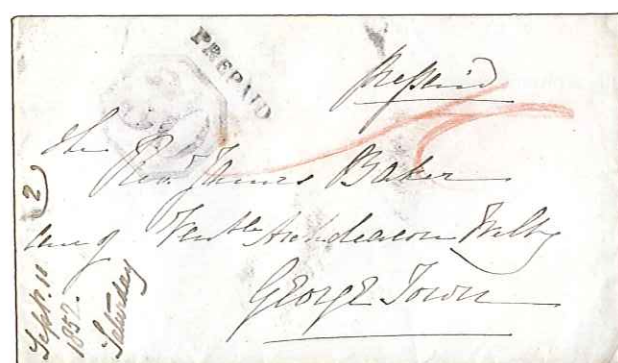 PREPAID
Prepaid
The
Revd. James Baker
Venble Archdeacon
GEORGE Town
2
Sept. 11
1852.
Saturday